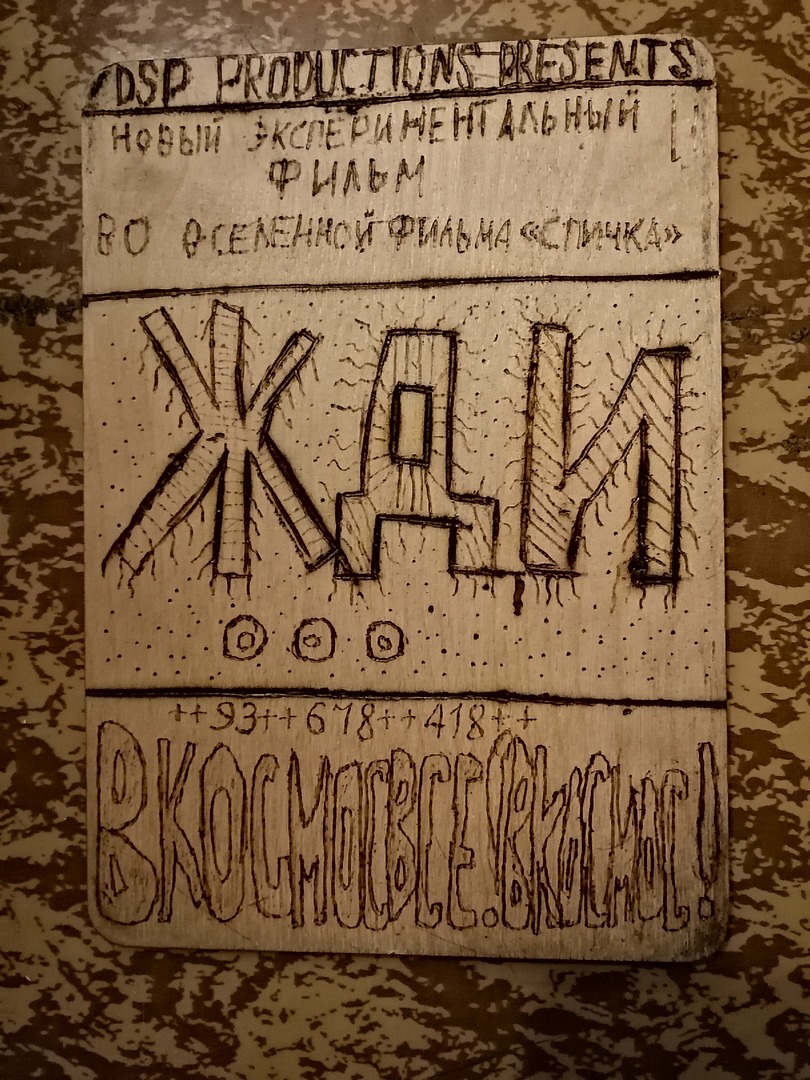 DSP PRODUCTIONS PRESENTS
НОВЫЙ ЭКСПЕРИМЕНТАЛЬНЫЙ
ФИЛЬМ
ВО ВСЕЛЕННОЙ ФИЛЬМА «СПИЧКА»
ЖДИ
++93++678++418++
ВКОСМОСВСЕ!ВКОСМОС!